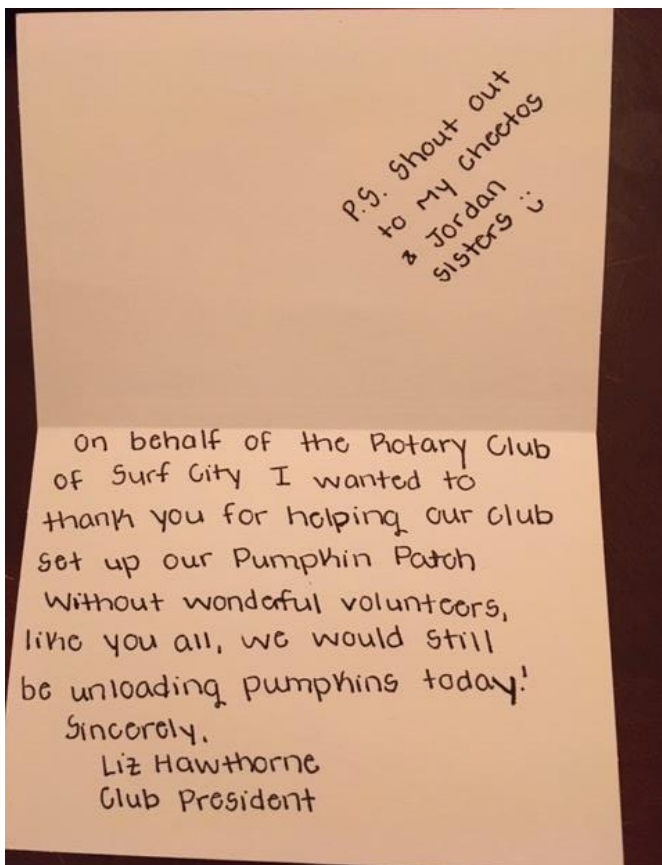 P.S. Shout out
to my cheetos
& Jordan
sisters :)
On behalf of the Rotary Club
of Surf City I wanted to
thank you for helping our club
set up our Pumpkin Patch
Without wonderful volunteers,
like you all, we would still
be unloading pumpkins today!
Sincerely,
Liz Hawthorne
Club President